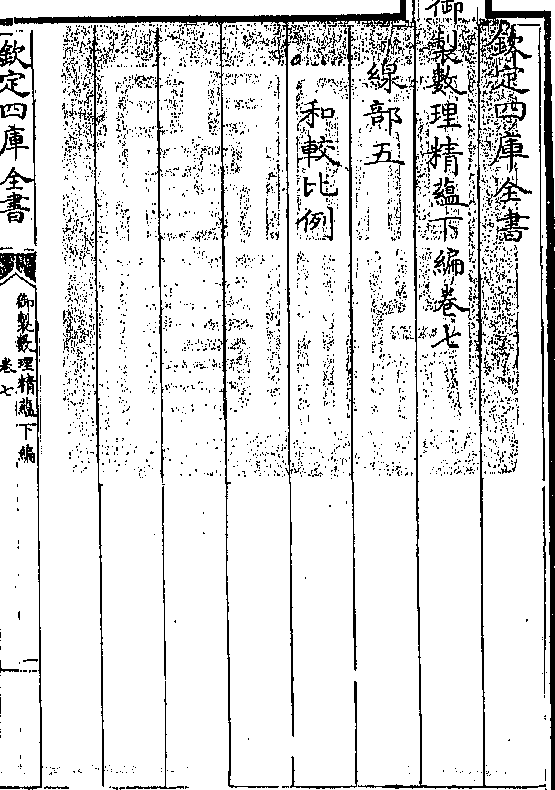 欽定四庫全書
御製數理精蘊下編卷七
線部五
和較比例
欽定四庫全書
御製數理精蘊下編
卷七
一